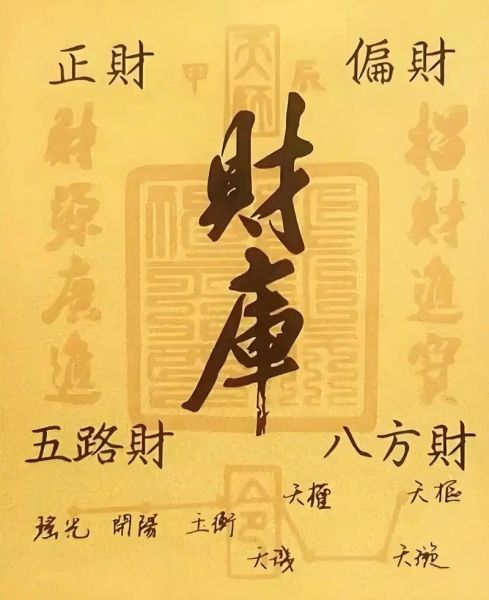 正財
偏財
甲辰
天師
招財進寶
財源廣進
財庫
五路財
八方財
天樞
天璇
天璣
天權
玉衡
開陽
瑤光
令